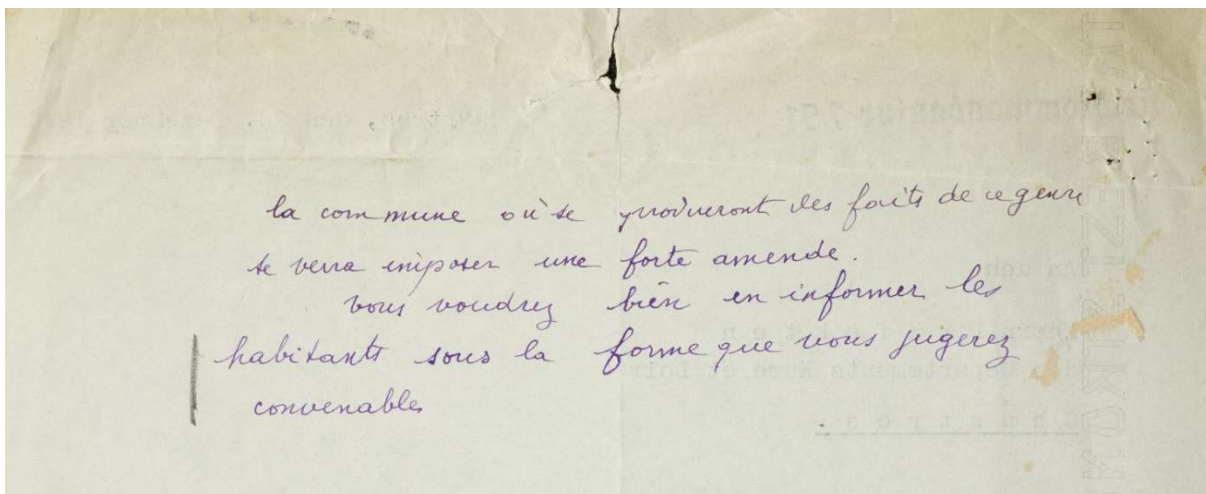 la commune où se produiront des faits de ce genre
se verra imposer une forte amende.
vous voudrez bien en informer les
habitants sous la forme que vous jugerez
convenable